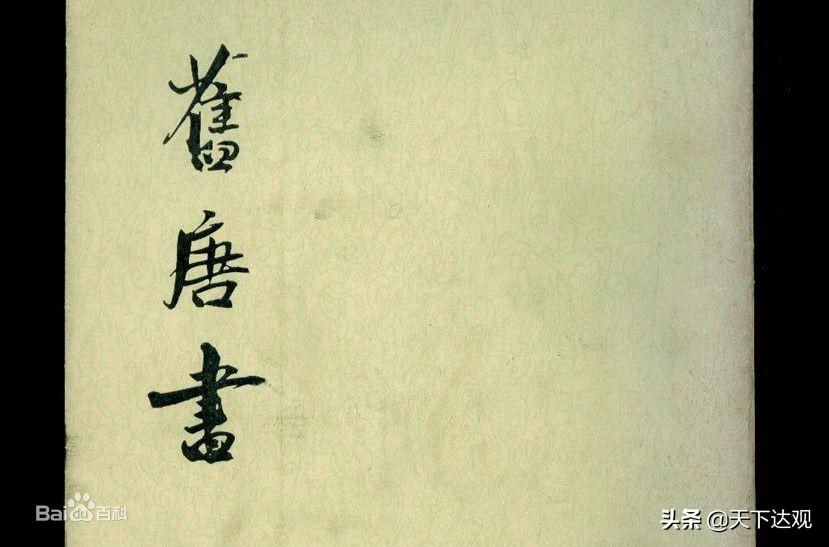 舊唐書
Bai du 百科
头条 @天下达观